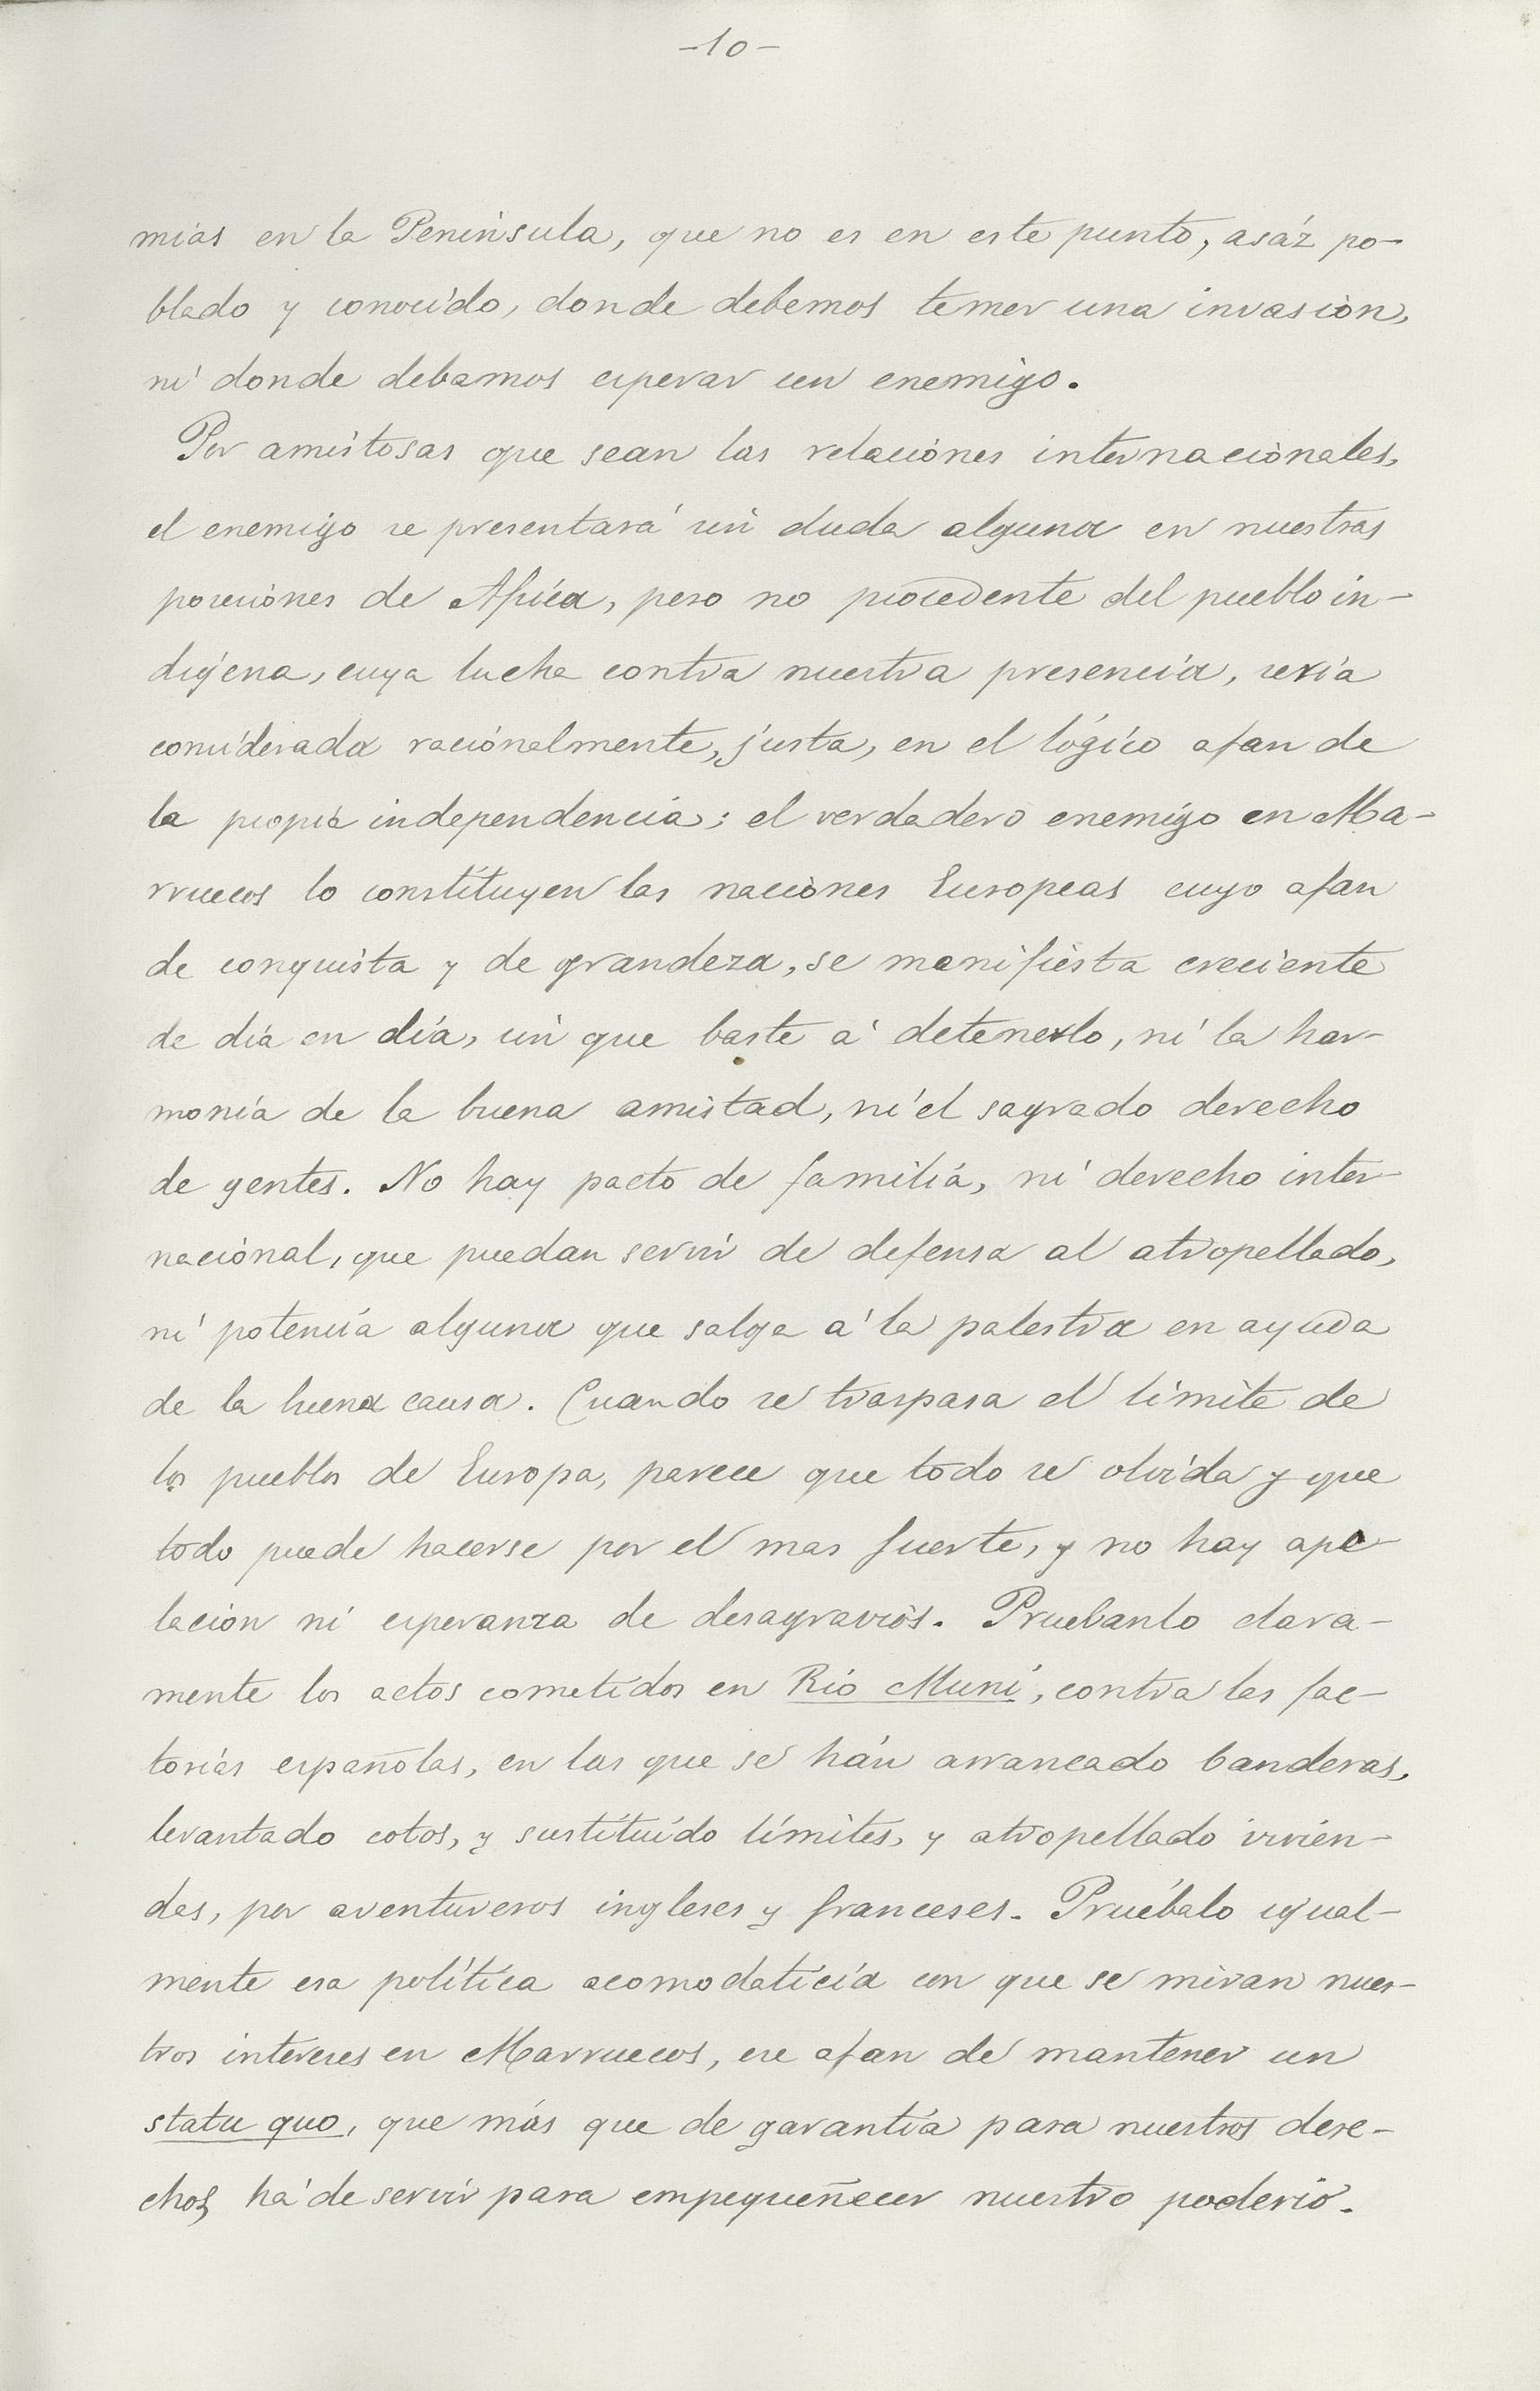 -10-
mias en la Peninsula, que no es en este punto, asáz po-
blado y conocido, donde debemos temer una invasion,
ni donde debamos esperar un enemigo.
Por amistosas que sean las relaciones internacionales,
el enemigo se presentará sin duda alguna en nuestras
posesiones de Africa, pero no procedente del pueblo in-
digena, cuya lucha contra nuestra presencia, sería
considerada racionalmente, justa, en el lógico afan de
la propia independencia; el verdadero enemigo en Ma-
rruecos lo constituyen las naciones Europeas cuyo afan
de conquista y de grandeza, se manifiesta creciente
de día en día, sin que baste á detenerlo, ni la har-
monía de la buena amistad, ni el sagrado derecho
de gentes. No hay pacto de familia, ni derecho inter-
nacional, que puedan servir de defensa al atropellado,
ni potencia alguna que salga á la palestra en ayuda
de la buena causa. Cuando se traspasa el limite de
los pueblos de Europa, parece que todo se olvida y que
todo puede hacerse por el mas fuerte, y no hay ape-
lacion ni esperanza de desagravios. Pruebanlo clara-
mente los actos cometidos en Rio Muni, contra las fac-
torias españolas, en las que se hán arrancado banderas,
levantado cotos, y sustituido límites, y atropellado vivien-
das, por aventureros ingleses y franceses. Pruébalo igual-
mente esa política acomodaticia con que se miran nues-
tros intereses en Marruecos, ese afan de mantener un
statu quo, que más que de garantía para nuestros dere-
chos, há de servir para empequeñecer nuestro poderio.